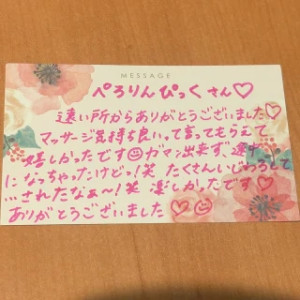 MESSAGE
ぺろりんぴっく さん♡
遠い所からありがとうございました♡
マッサージ気持ち良いって言ってもらえて
嬉しかったです☺ガマン出来ず、逆
になっちゃったけどっ!笑 たくさんいじわるして
…されたなぁ〜!笑 楽しかったです♡
ありがとうございました♡☺